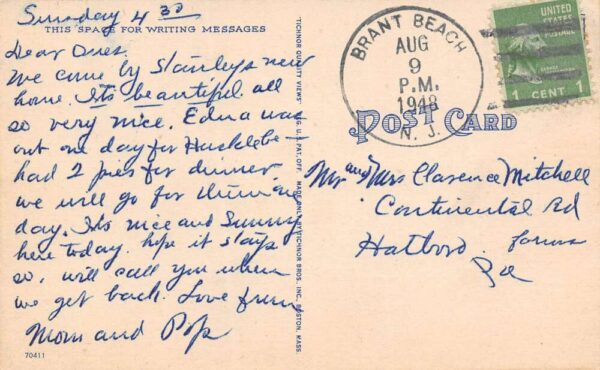 Sunday 4 30
THIS SPACE FOR WRITING MESSAGES
Dear Ones.
We came by Stanleys new
home. Its beautiful all
so very nice. Edna was
out one day for Huckleb-
had 2 pies for dinner.
we will go for them one
day. Its nice and Sunny
here today. hope it stays
so, will call you when
we get back. Love from
Mom and Pop
70411
TICHNOR QUALITY VIEWS REG. U. S. PAT. OFF. MADE ONLY BY TICHNOR BROS. INC., BOSTON, MASS.
BRANT BEACH
AUG
9
P.M.
1948
N. J.
UNITED
STATES
POSTAGE
1 CENT 1
POST CARD
Mr and Mrs Clarence Mitchell
Continental Rd
Hatboro. farms
Pa